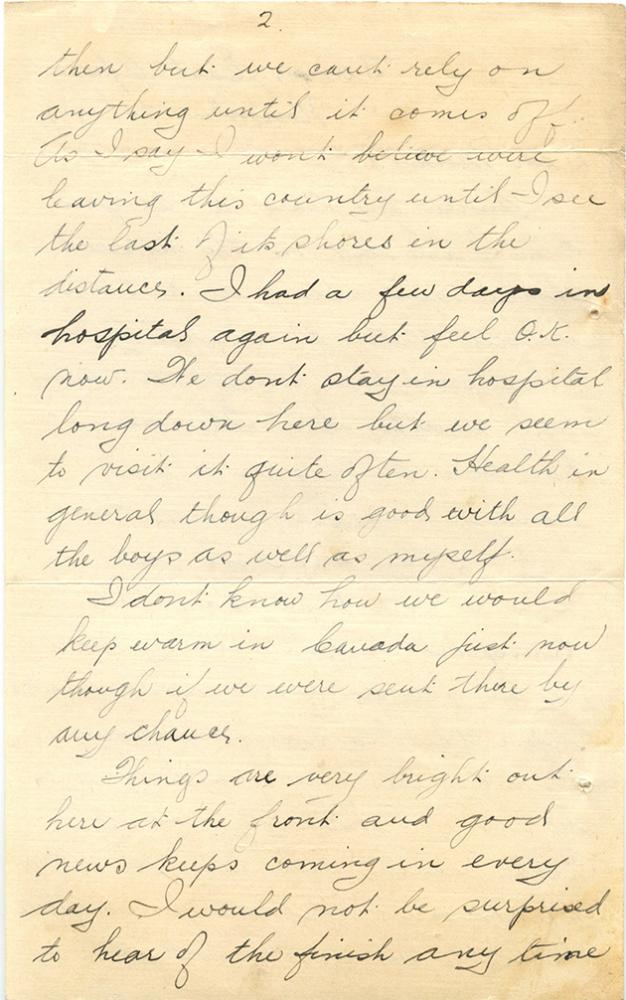 2.
then but we cant rely on
anything until it comes off.
As I say I wont believe were
leaving this country until I see
the last of its shores in the
distance. I had a few days in
hospital again but feel O.K.
now. We dont stay in hospital
long down here but we seem
to visit it quite often. Health in
general though is good with all
the boys as well as myself.
I dont know how we would
keep warm in Canada just now
though if we were sent there by
any chance.
Things are very bright out
here at the front and good
news keeps coming in every
day. I would not be surprised
to hear of the finish any time